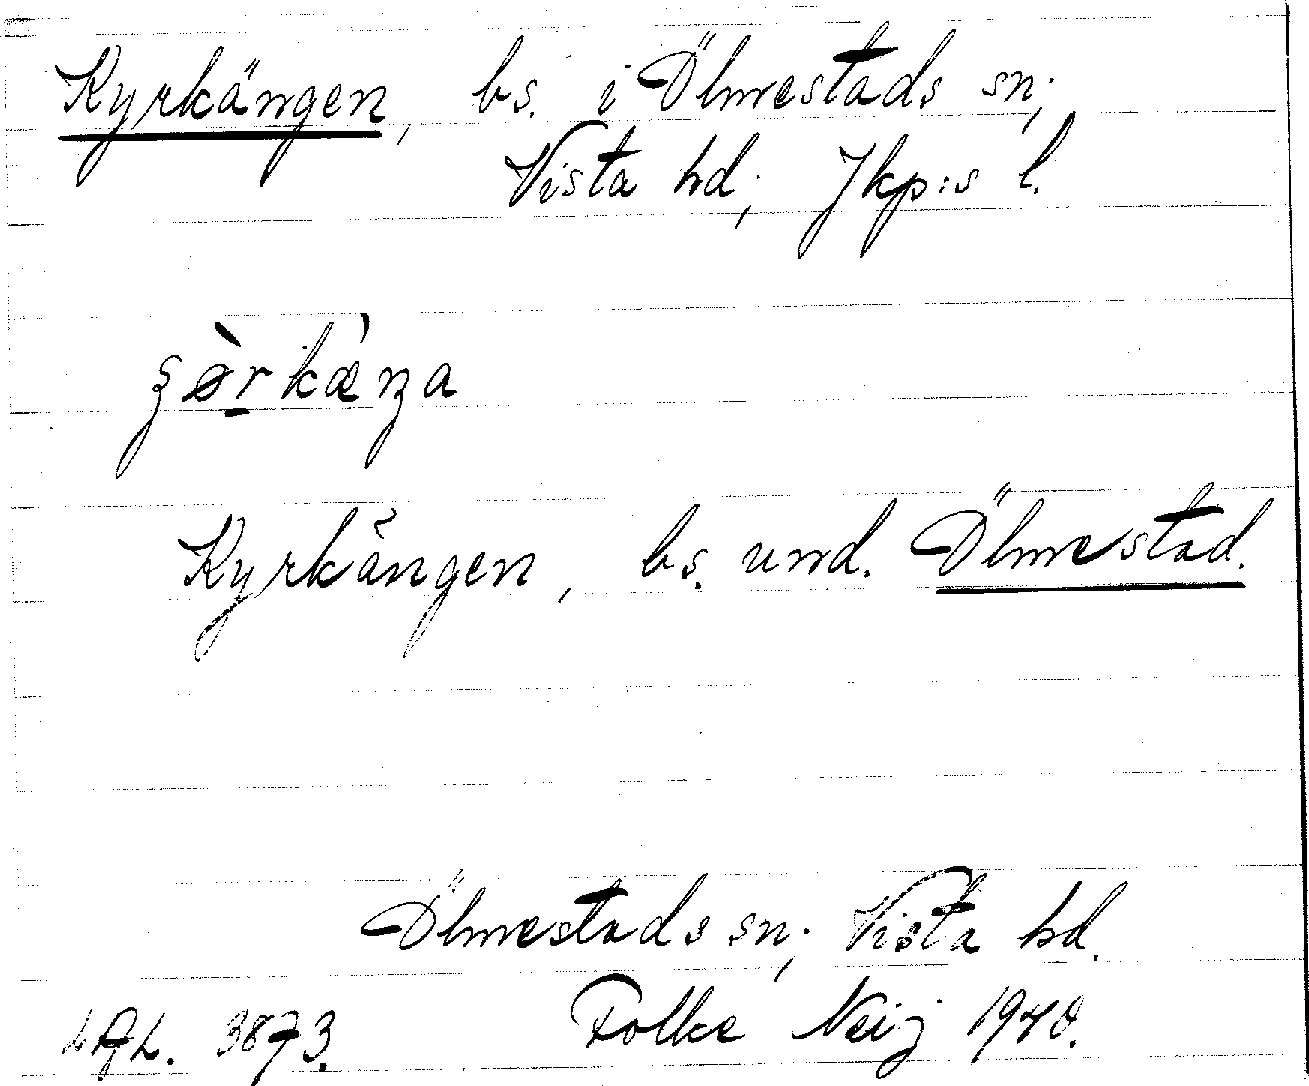 Kyrkängen, bs. i Ölmestads sn;
Vista hd; Jkp:s l.
Kyrkängen, bs. und. Ölmestad.
Ölmestads sn; Vista hd.
Folke Neij 1940.
3873.